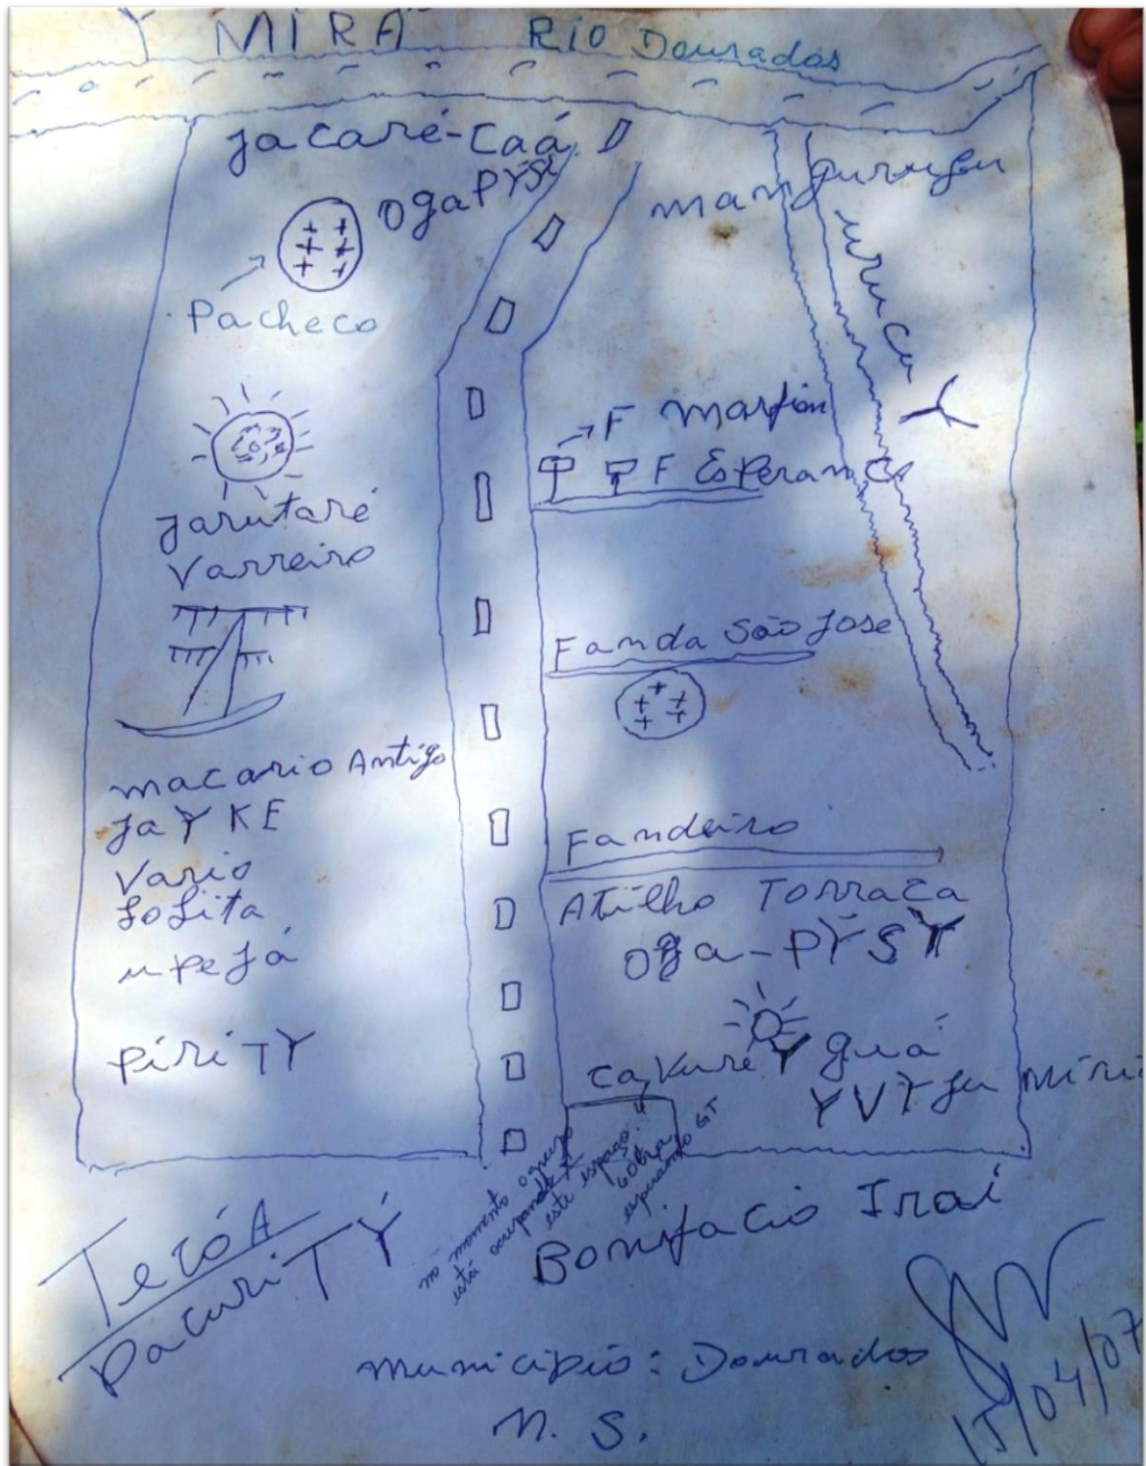 Y MIRÃ Rio Dourados
Jacaré-Caá
ogaPYSY
Pacheco
Jarutaré
Varreiro
macario Antigo
JaYKE
Vario
Lolita
upeJá
PiriTY
urucu
F Marfim
F Esperança
Fanda São Jose
Fandeiro
Atilho Torraca
Oga-PYSY
CaKure Y guá
YVYJu Miri
no momento o grupo
está ocupando
este espaço.
esperando GT
Bonifacio Iraí
TecóA
PacuriTY
Municipio: Dourados
M. S.
15/04/07